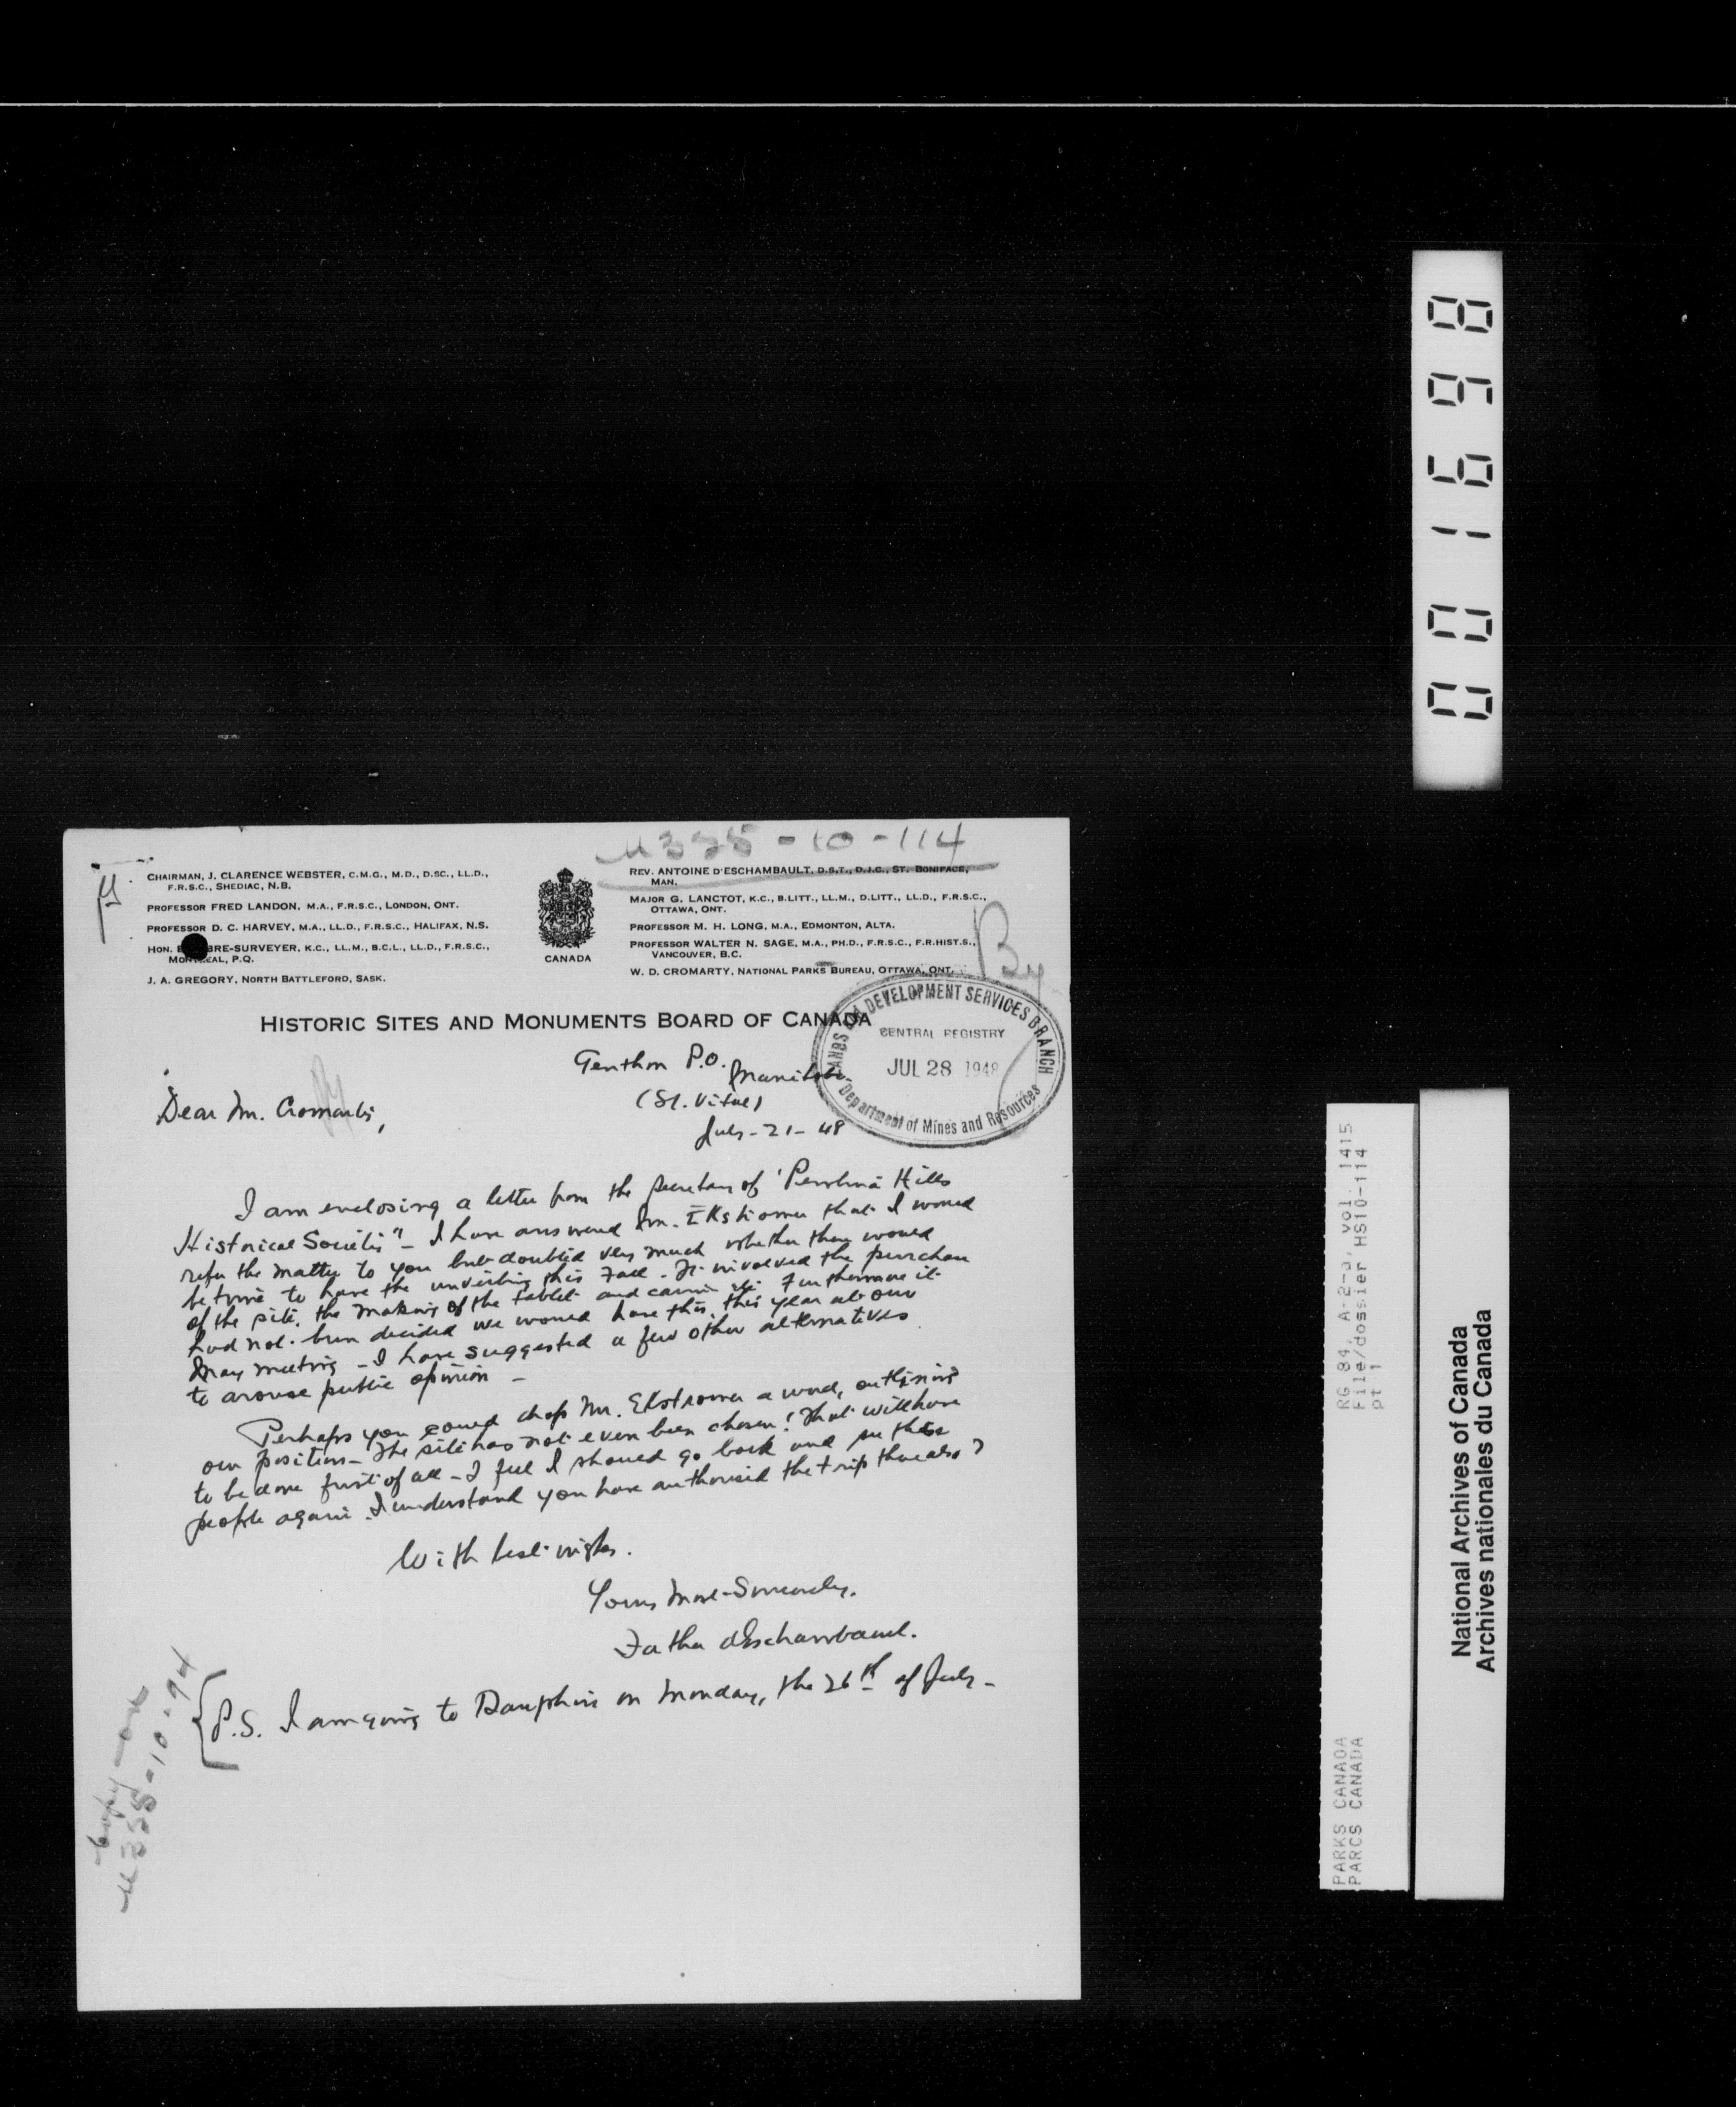 U325-10-114
CHAIRMAN, J. CLARENCE WEBSTER, C.M.G., M.D., D.SC., LL.D.,
F.R.S.C., SHEDIAC, N.B.
PROFESSOR FRED LANDON, M.A., F.R.S.C., LONDON, ONT.
PROFESSOR D. C. HARVEY, M.A., LL.D., F.R.S.C., HALIFAX, N.S.
HON. BRE-SURVEYER, K.C., LL.M., B.C.L., LL.D., F.R.S.C.,
MONTREAL, P.Q.
J. A. GREGORY, NORTH BATTLEFORD, SASK.
CANADA
REV. ANTOINE D'ESCHAMBAULT, D.S.T., D.J.C., ST. BONIFACE,
MAN.
MAJOR G. LANCTOT, K.C., B.LITT., LL.M., D.LITT., LL.D., F.R.S.C.,
OTTAWA, ONT.
PROFESSOR M. H. LONG, M.A., EDMONTON, ALTA.
PROFESSOR WALTER N. SAGE, M.A., PH.D., F.R.S.C., F.R.HIST.S.,
VANCOUVER, B.C.
W. D. CROMARTY, NATIONAL PARKS BUREAU, OTTAWA, ONT.
HISTORIC SITES AND MONUMENTS BOARD OF CANADA
LANDS AND DEVELOPMENT SERVICES BRANCH
CENTRAL REGISTRY
JUL 28 1948
Department of Mines and Resources
Genthon P.O.
Manitoba.
(St. Vital)
July-21-48
Dear Mr. Cromarty,
I am enclosing a letter from the Secretary of 'Pembina Hills
Historical Society" - I have answered Mr. that I would
refer the matter to you but doubted very much whether there would
be time to have the unveiling this Fall. It involved the purchase
of the site, the making of the tablet and cairn etc. Furthermore it
had not been decided we would have this, this year at our
May meeting - I have suggested a few other alternatives
to arouse public opinion -
Perhaps you could drop Mr. a word, outlining
our position - The site has not even been chosen! That will have
to be done first of all - I feel I should go back and see these
people again. I understand you have authorised the trip there also?
With best wishes.
Yours Most Sincerely.
Father d'Eschambault.
P.S. I am going to Dauphin on Monday, the 26th of July -
Copy on
U325-10-94
001698
RG 84, A-2-a, vol. 1415
File/dossier HS10-114
pt 1
PARKS CANADA
PARCS CANADA
National Archives of Canada
Archives nationales du Canada